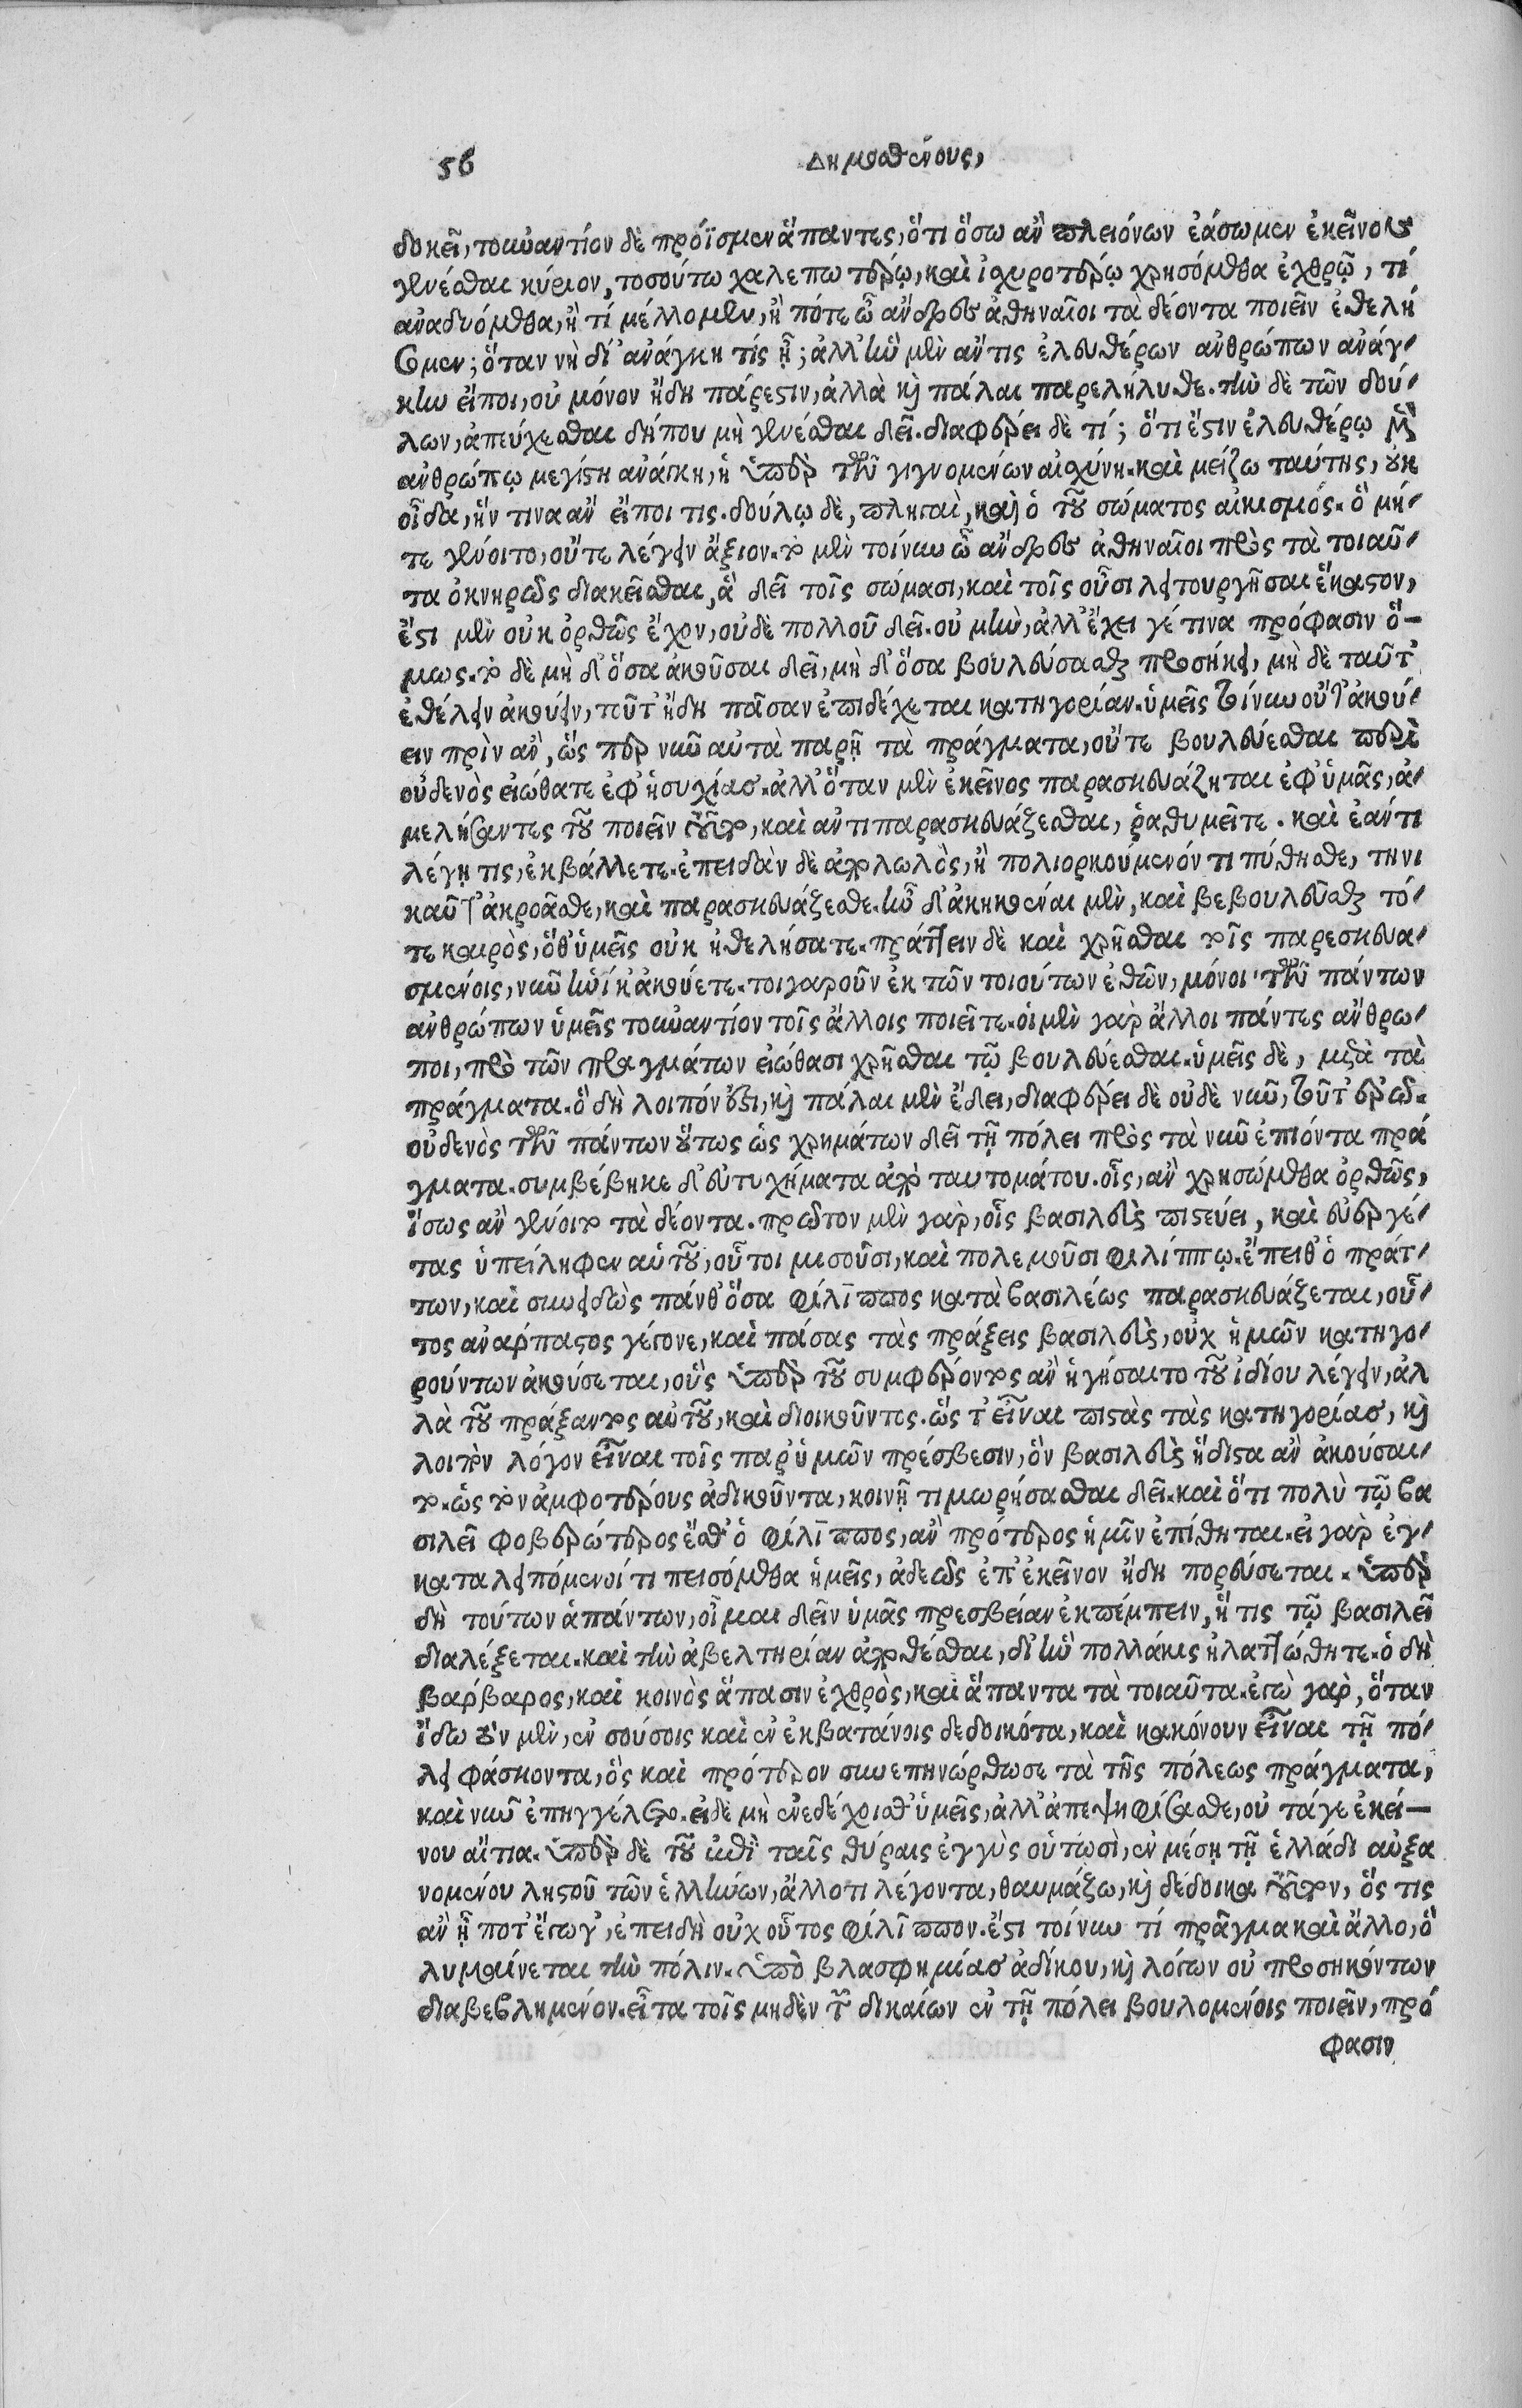 56 Δημοσθένους,
δοκεῖ, τοὐναντίον δὲ πρόϊσμεν ἅπαντες, ὅτι ὅσῳ ἂν πλειόνων ἐάσωμεν ἐκεῖνον
γενέσθαι κύριον, τοσούτῳ χαλεπωτέρῳ, καὶ ἰσχυροτέρῳ χρησόμεθα ἐχθρῷ, τί
ἀναδυόμεθα, ἢ τί μέλλομεν, ἢ πότε ὦ ἄνδρες ἀθηναῖοι τὰ δέοντα ποιεῖν ἐθελή
σομεν; ὅταν νὴ δί' ἀνάγκη τίς ᾖ; ἀλλ' ἣν μὲν ἄν τις ἐλευθέρων ἀνθρώπων ἀνάγ-
κην εἴποι, οὐ μόνον ἤδη πάρεστιν, ἀλλὰ καὶ πάλαι παρελήλυθε. τὴν δὲ τῶν δού-
λων, ἀπεύχεσθαι δήπου μὴ γενέσθαι δεῖ. διαφέρει δὲ τί; ὅτι ἔστιν ἐλευθέρῳ μὲν
ἀνθρώπῳ μεγίστη ἀνάγκη, ἡ ὑπὲρ τῶν γιγνομένων αἰσχύνη. καὶ μείζω ταύτης, οὐκ
οἶδα, ἥν τινα ἂν εἴποι τις. δούλῳ δὲ, πληγαὶ, καὶ ὁ τοῦ σώματος αἰκισμός. ὃ μή-
τε γένοιτο, οὔτε λέγειν ἄξιον. τὸ μὲν τοίνυν ὦ ἄνδρες ἀθηναῖοι πρὸς τὰ τοιαῦ-
τα ὀκνηρῶς διακεῖσθαι, ἃ δεῖ τοῖς σώμασι, καὶ τοῖς οὖσι λειτουργῆσαι ἕκαστον,
ἔστι μὲν οὐκ ὀρθῶς ἔχον, οὐδὲ πολλοῦ δεῖ. οὐ μὴν, ἀλλ' ἔχει γέ τινα πρόφασιν ὅ-
μως. τὸ δὲ μὴ δ' ὅσα ἀκοῦσαι δεῖ, μὴ δ' ὅσα βουλεύσασθαι προσήκει, μὴ δὲ ταῦτ'
ἐθέλειν ἀκούειν, τοῦτ' ἤδη πᾶσαν ἐπιδέχεται κατηγορίαν. ὑμεῖς τοίνυν οὔτ' ἀκού-
ειν πρὶν ἂν, ὥς περ νῦν αὐτὰ παρῇ τὰ πράγματα, οὔτε βουλεύεσθαι περὶ
οὐδενὸς εἰώθατε ἐφ' ἡσυχίας. ἀλλ' ὅταν μὲν ἐκεῖνος παρασκευάζηται ἐφ' ὑμᾶς, ἀ-
μελήσαντες τοῦ ποιεῖν τοῦτο, καὶ ἀντιπαρασκευάζεσθαι, ῥαθυμεῖτε. καὶ ἐάν τι
λέγῃ τις, ἐκβάλλετε. ἐπειδὰν δὲ ἀπολωλὸς, ἢ πολιορκούμενόν τι πύθησθε, τηνι
καῦτ' ἀκροᾶσθε, καὶ παρασκευάζεσθε. ἦν δ' ἀκηκοέναι μὲν, καὶ βεβουλεῦσθαι τό-
τε καιρὸς, ὅθ' ὑμεῖς οὐκ ἠθελήσατε. πράττειν δὲ καὶ χρῆσθαι τοῖς παρεσκευα-
σμένοις, νῦν ἡνίκ' ἀκούετε. τοιγαροῦν ἐκ τῶν τοιούτων ἐθῶν, μόνοι τῶν πάντων
ἀνθρώπων ὑμεῖς τοὐναντίον τοῖς ἄλλοις ποιεῖτε. οἱ μὲν γὰρ ἄλλοι πάντες ἄνθρω-
ποι, πρὸ τῶν πραγμάτων εἰώθασι χρῆσθαι τῷ βουλεύεσθαι. ὑμεῖς δὲ, μετὰ τὰ
πράγματα. ὃ δὴ λοιπόν ἐστι, καὶ πάλαι μὲν ἔδει, διαφέρει δὲ οὐδὲ νῦν, τοῦτ' ἐρῶ.
οὐδενὸς τῶν πάντων οὕτως ὡς χρημάτων δεῖ τῇ πόλει πρὸς τὰ νῦν ἐπιόντα πρά
γματα. συμβέβηκε δ' εὐτυχήματα ἀπὸ ταυτομάτου. οἷς, ἂν χρησώμεθα ὀρθῶς,
ἴσως ἂν γένοιτο τὰ δέοντα. πρῶτον μὲν γὰρ, οἷς βασιλεὺς πιστεύει, καὶ εὐεργέ-
τας ὑπείληφεν αὑτοῦ, οὗτοι μισοῦσι, καὶ πολεμοῦσι φιλίππῳ. ἔπειθ' ὁ πράτ-
των, καὶ συνειδὼς πάνθ' ὅσα φίλιππος κατὰ βασιλέως παρασκευάζεται, οὗ-
τος ἀνάρπαστος γέγονε, καὶ πάσας τὰς πράξεις βασιλεὺς, οὐχ ἡμῶν κατηγο-
ρούντων ἀκούσεται, οὓς ὑπὲρ τοῦ συμφέροντος ἂν ἡγήσαιτο τοῦ ἰδίου λέγειν, ἀλ
λὰ τοῦ πράξαντος αὐτοῦ, καὶ διοικοῦντος. ὥς τ' εἶναι πιστὰς τὰς κατηγορίας, καὶ
λοιπὸν λόγον εἶναι τοῖς παρ' ὑμῶν πρέσβεσιν, ὃν βασιλεὺς ἥδιστα ἂν ἀκούσαι-
το. ὡς τὸν ἀμφοτέρους ἀδικοῦντα, κοινῇ τιμωρήσασθαι δεῖ. καὶ ὅτι πολὺ τῷ βα
σιλεῖ φοβερώτερος ἔσθ' ὁ φίλιππος, ἂν πρότερος ἡμῖν ἐπίθηται. εἰ γὰρ ἐγ-
καταλειπόμενοί τι πεισόμεθα ἡμεῖς, ἀδεῶς ἐπ' ἐκεῖνον ἤδη πορεύσεται. ὑπὲρ
δὴ τούτων ἁπάντων, οἶμαι δεῖν ὑμᾶς πρεσβείαν ἐκπέμπειν, ἥ τις τῷ βασιλεῖ
διαλέξεται. καὶ τὴν ἀβελτηρίαν ἀποθέσθαι, δι' ἣν πολλάκις ἠλαττώθητε. ὁ δὴ
βάρβαρος, καὶ κοινὸς ἅπασιν ἐχθρὸς, καὶ ἅπαντα τὰ τοιαῦτα. ἐγὼ γὰρ, ὅταν
ἴδω τὸν μὲν, ἐν σούσοις καὶ ἐν ἐκβατάνοις δεδοικότα, καὶ κακόνουν εἶναι τῇ πό-
λει φάσκοντα, ὃς καὶ πρότερον συνεπηνώρθωσε τὰ τῆς πόλεως πράγματα,
καὶ νῦν ἐπηγγέλετο. εἰ δὲ μὴ ἐνεδέχοισθ' ὑμεῖς, ἀλλ' ἀπεψηφίσασθε, οὐ τά γε ἐκεί-
νου αἴτια. ὑπὲρ δὲ τοῦ ἐπὶ ταῖς θύραις ἐγγὺς οὑτωσὶ, ἐν μέσῃ τῇ ἑλλάδι αὐξα
νομένου λῃστοῦ τῶν ἑλλήνων, ἄλλο τι λέγοντα, θαυμάζω, καὶ δέδοικα τοῦτον, ὅς τις
ἂν ᾖ ποτ' ἔγωγ', ἐπειδὴ οὐχ οὗτος φίλιππον. ἔστι τοίνυν τί πρᾶγμα καὶ ἄλλο, ὃ
λυμαίνεται τὴν πόλιν. ὑπὸ βλασφημίας ἀδίκου, καὶ λόγων οὐ προσηκόντων
διαβεβλημένον. εἶτα τοῖς μηδὲν τῶν δικαίων ἐν τῇ πόλει βουλομένοις ποιεῖν, πρό
φασιν